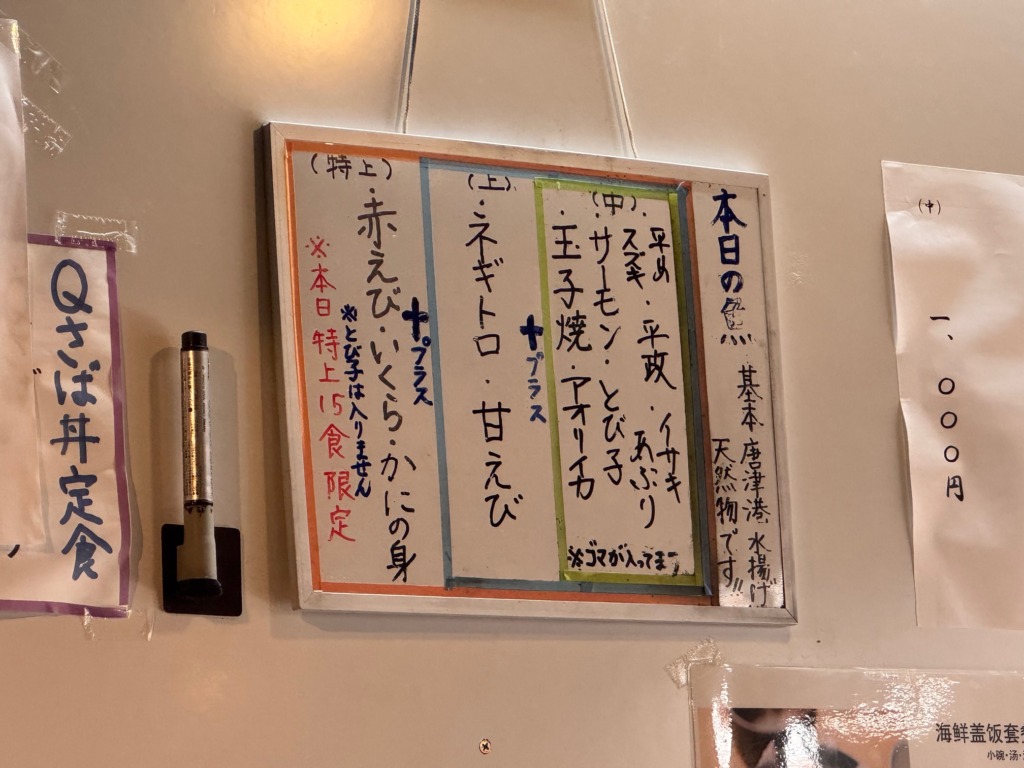 本日の魚
基本 唐津港 水揚げ
天然物です!!
(中)
・平め・平政・イサキ
スズキ あぶり
・サーモン・とび子
・玉子焼・アオリイカ
※ゴマが入ってます
+プラス
(上)
・ネギトロ・甘えび
+プラス
※とび子は入りません
(特上)
・赤えび・いくら・かにの身
※本日特上15食限定
Qさば丼定食
(中)
一、〇〇〇円
海鲜盖饭套
小碗・汤・